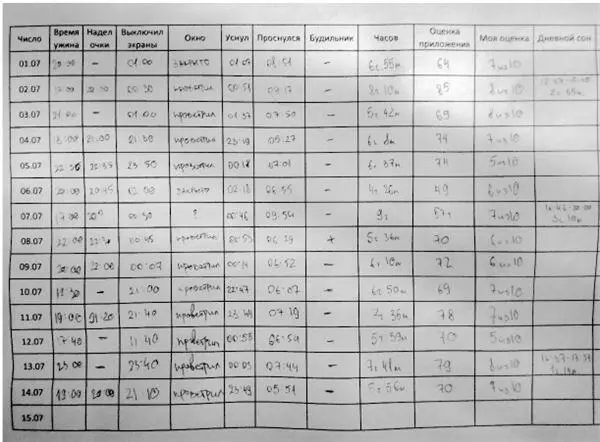 Число Время ужина Надел очки Выключил экраны Окно Уснул Проснулся Будильник Часов Оценка приложения Моя оценка Дневной сон
01.07 20:00 – 01:00 закрыто 08:51 – 6ч 55м 64 7из10
02.07 00:30 проветрил 00:51 09:17 – 8ч 10м 85 8из10
03.07 21:00 – 01:00 проветрил 01:37 07:50 – 5ч 42м 69 8из10
04.07 21:00 21:30 проветрил 23:19 05:27 – 6ч 8м 74 7из10
05.07 22:35 23:50 проветрил 00:18 07:01 – 6ч 37м 74 5из10
06.07 20:00 20:45 закрыто 02:18 06:55 – 4ч 26м 49 6из10
07.07 17:00 00:30 ? 00:46 09:54 – 9ч 7из10
08.07 22:00 22:30 00:45 проветрил 00:53 06:29 + 5ч 36м 70 6из10
09.07 20:00 22:00 00:07 проветрил 00:14 06:52 – 6ч 10м 72 6из10
10.07 – 21:00 проветрил 22:47 06:07 – 6ч 50м 69 7из10
11.07 19:00 21:20 21:40 проветрил 23:49 07:19 – 78 7из10
12.07 17:40 – проветрил 00:55 06:54 – 5ч 59м 70 5из10
13.07 23:00 – 23:40 проветрил 00:03 07:44 – 7ч 41м 79 8из10
14.07 19:00 20:00 21:10 проветрил 23:49 05:51 – 5ч 56м 70 9из10
15.07